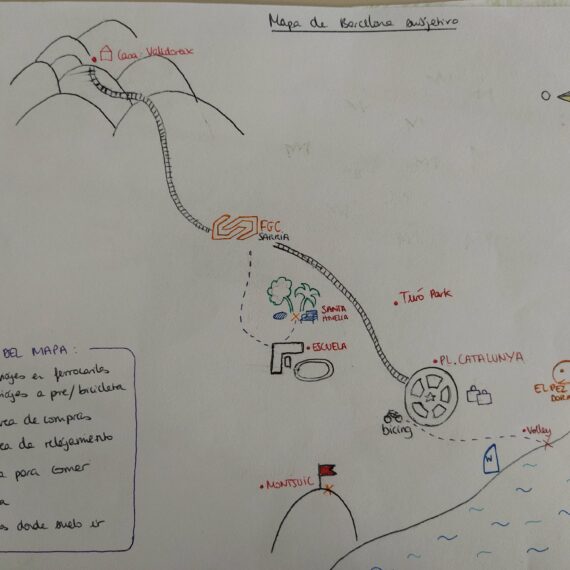 Mapa de Barcelona subjetivo
Casa Valldoreix
O
FGC
SARRIA
SANTA
AMELIA
ESCUELA
Turó Park
PL. CATALUNYA
EL PEZ
bicing
Volley
W
MONTJUIC
DEL MAPA:
en ferrocarriles
a pie/bicicleta
de compras
de relajamiento
para comer
donde suelo ir